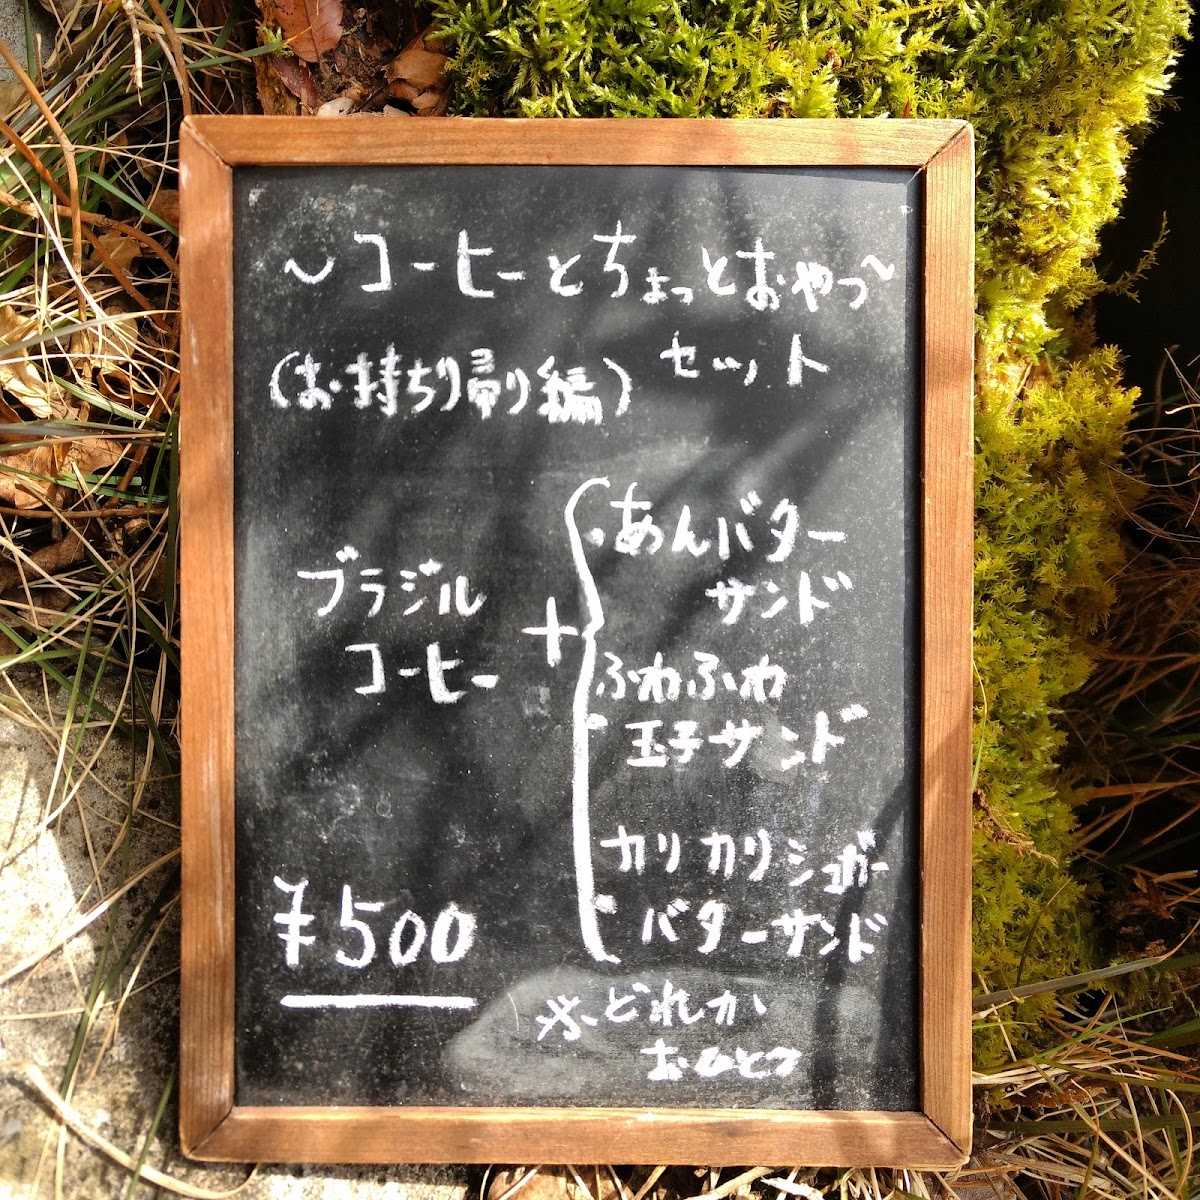 ～コーヒーとちょっとおやつ～
セット
(お持ち帰り編)
ブラジル
コーヒー
+
・あんバター
サンド
・ふわふわ
玉子サンド
・カリカリシュガー
バターサンド
¥500
※どれか
おひとつ